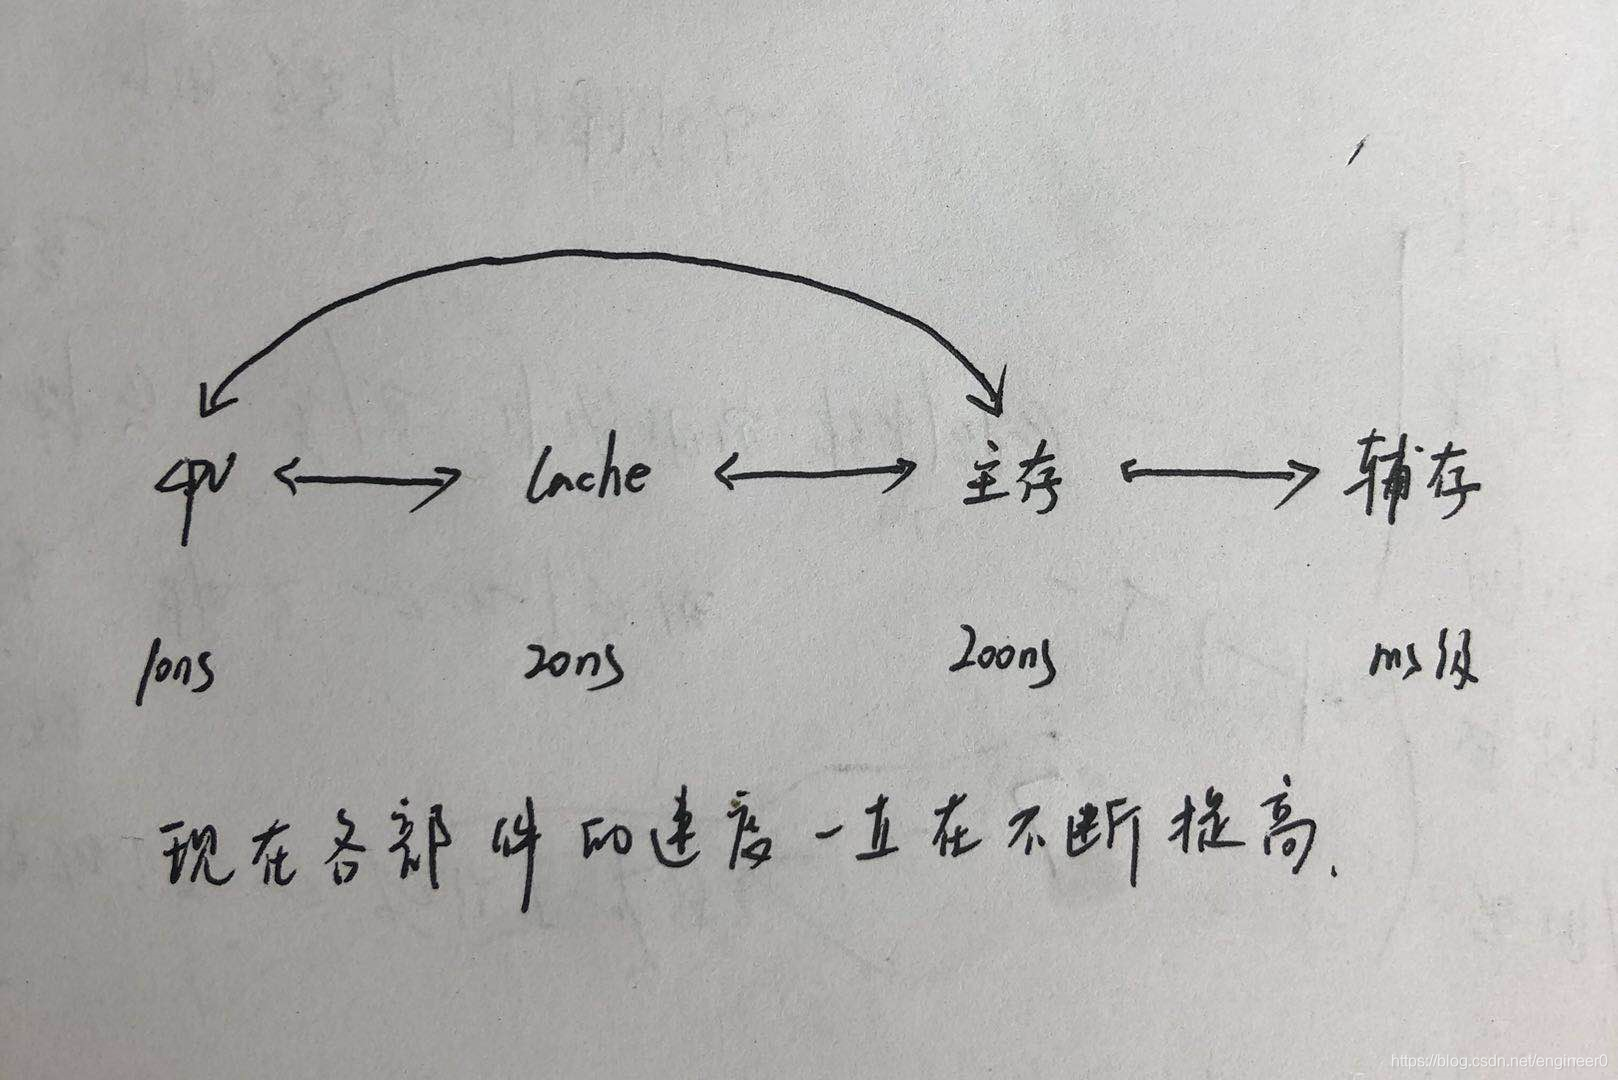 CPU Cache 主存 辅存
10ns 20ns 200ns ms级
现在各部件的速度一直在不断提高.
https://blog.csdn.net/engineer0